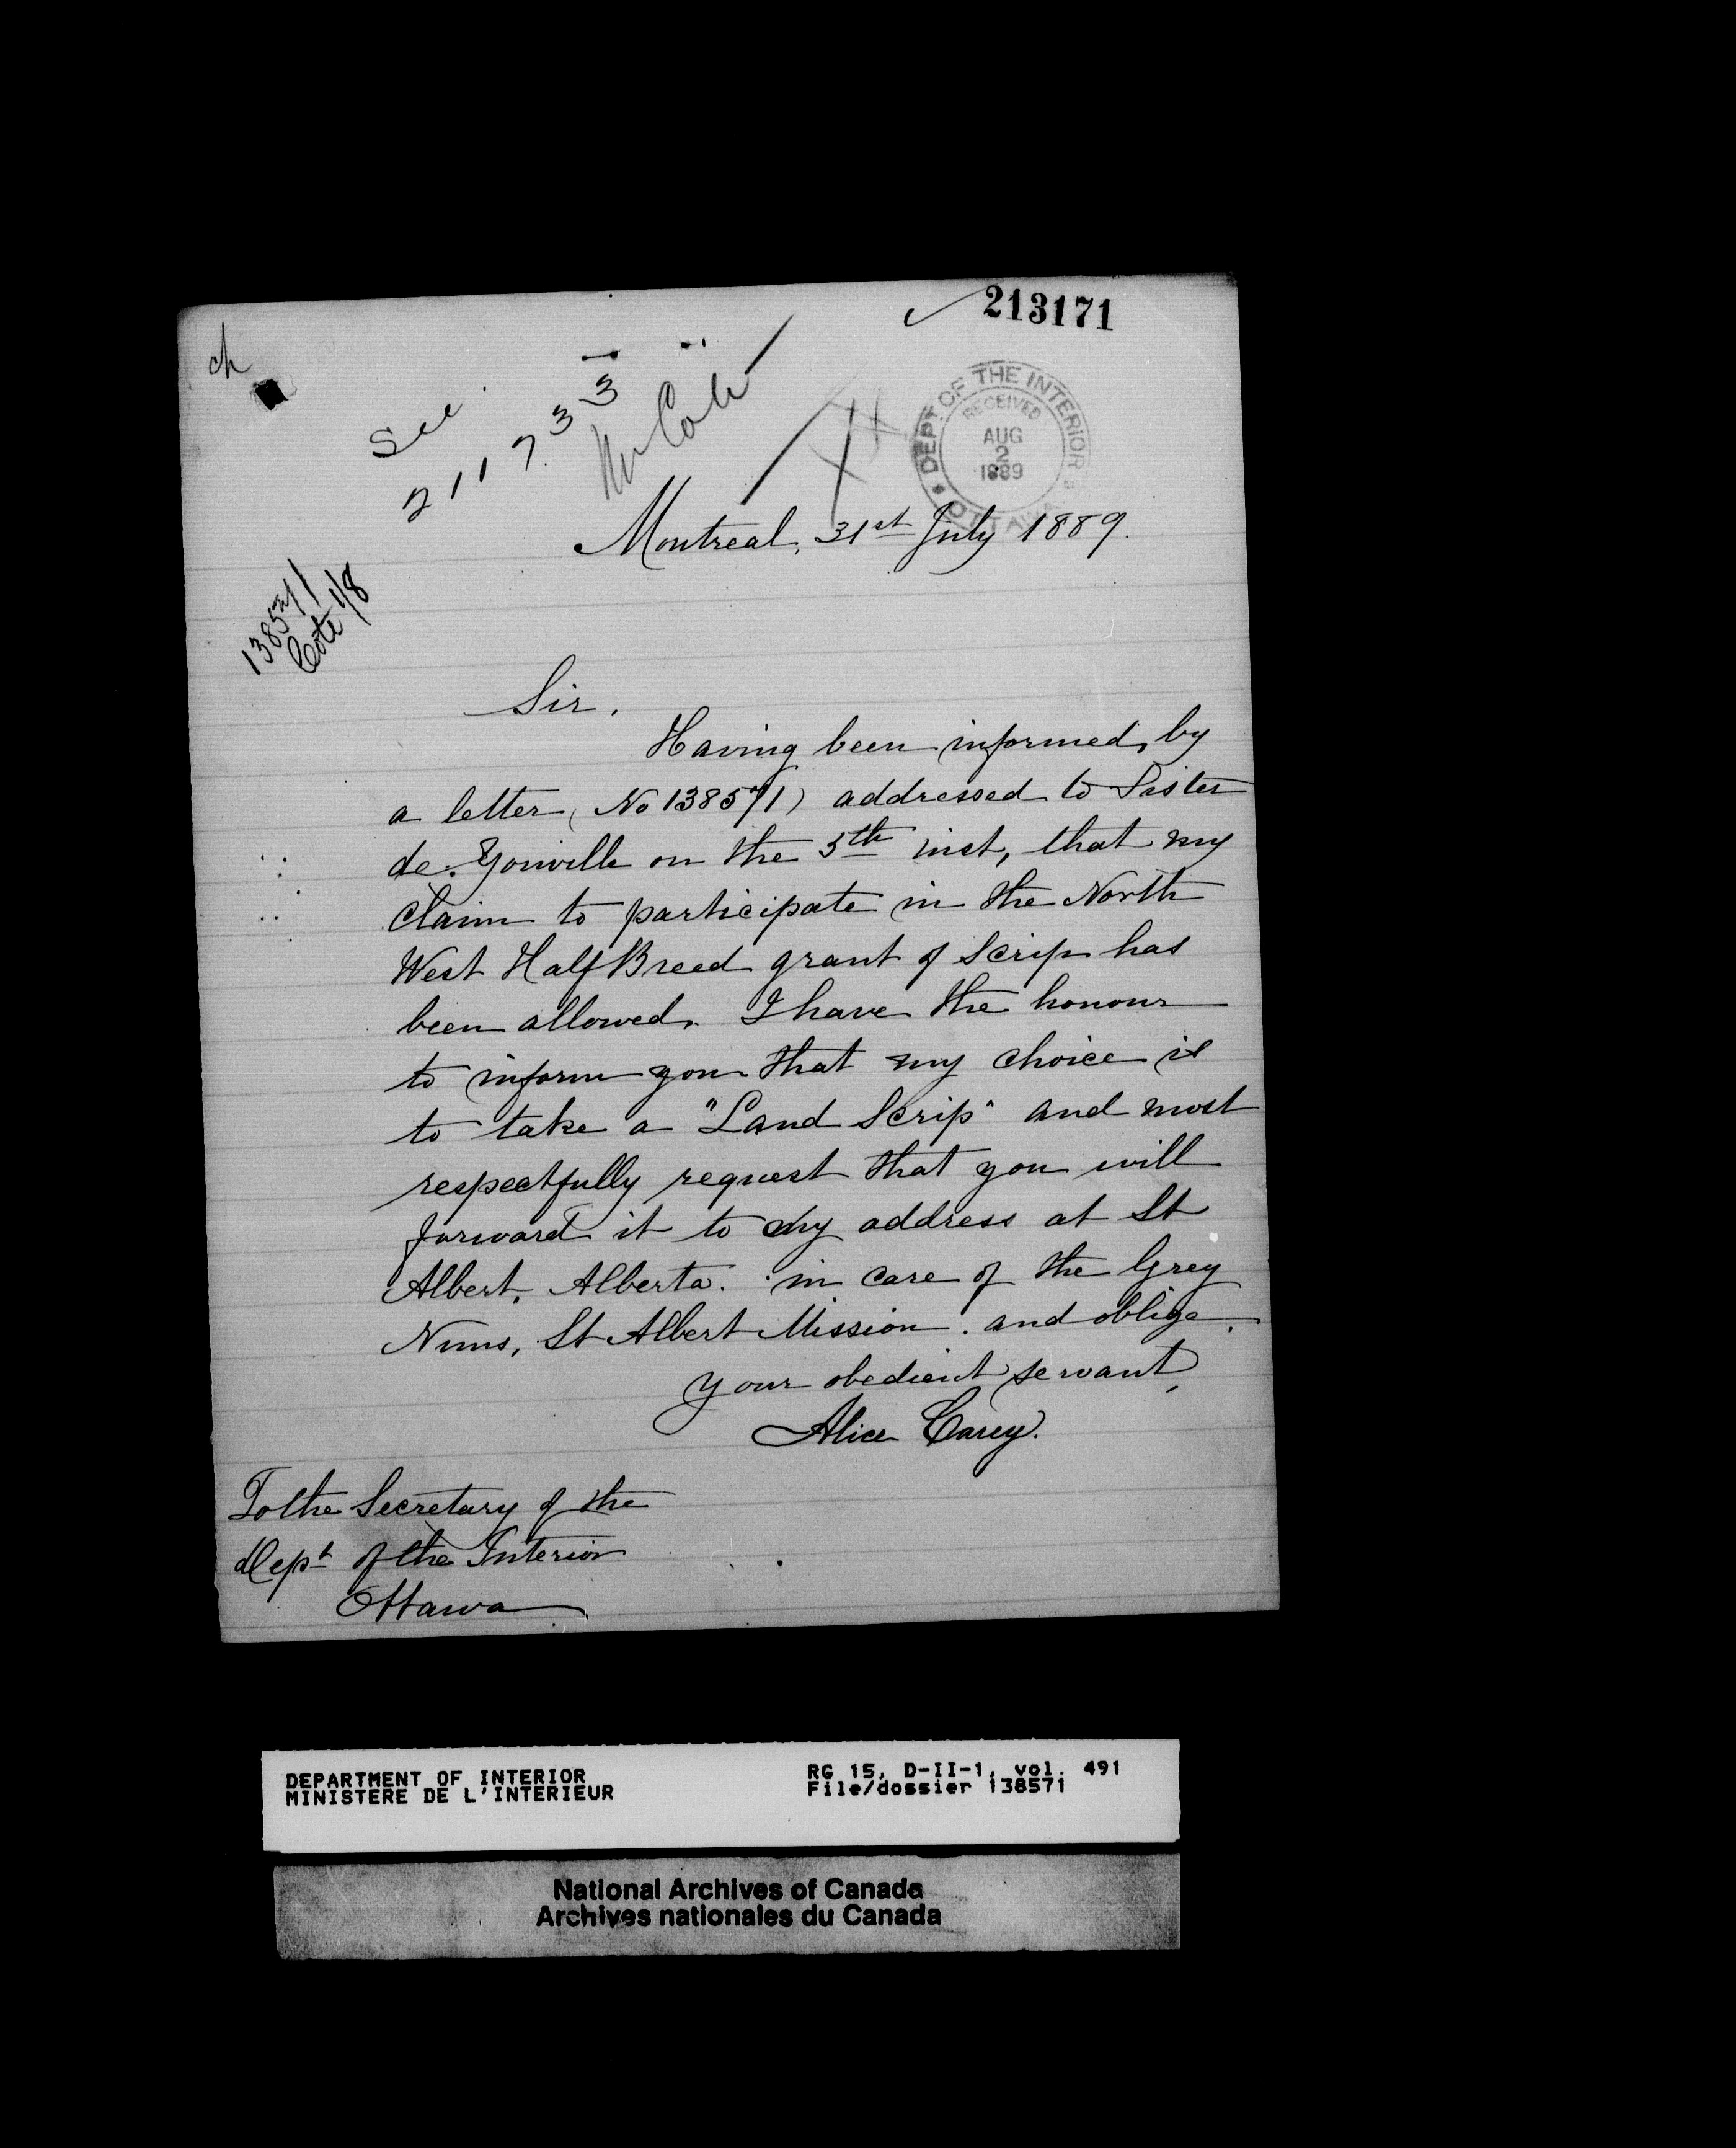 213171
ch
See
211733
Mr Cote
DEPT OF THE INTERIOR
RECEIVED
AUG
2
1889
OTTAWA
Montreal, 31st July 1889.
138571
Cote 1/8
Sir,
Having been informed, by
a letter (No 138571) addressed to Sister
de Youville on the 5th inst, that my
claim to participate in the North
West Half Breed grant of Scrip has
been allowed. I have the honour
to inform you that my choice is
to take a "Land Scrip" and most
respectfully request that you will
forward it to my address at St
Albert, Alberta. in care of the Grey
Nuns, St Albert Mission. and oblige.
Your obedient servant,
Alice Carey.
To the Secretary of the
Dept of the Interior
Ottawa
DEPARTMENT OF INTERIOR
MINISTERE DE L'INTERIEUR
RG 15, D-II-1, vol. 491
File/dossier 138571
National Archives of Canada
Archives nationales du Canada